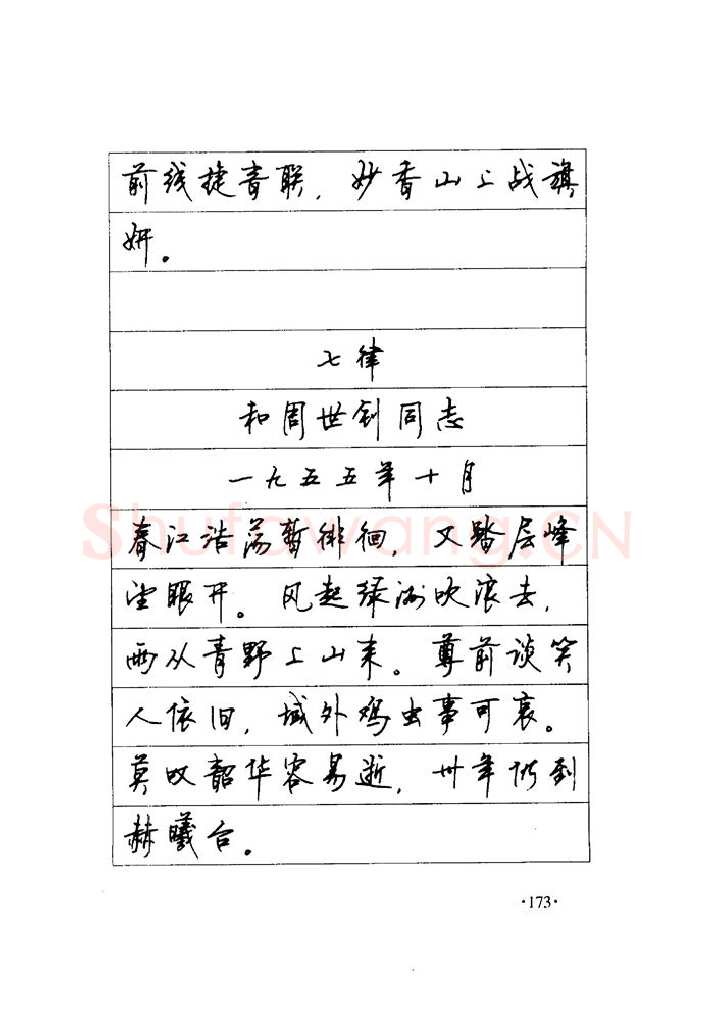 前线捷音联，妙香山上战旗
妍。
七律
和周世钊同志
一九五五年十月
春江浩荡暂徘徊，又踏层峰
望眼开。风起绿洲吹浪去，
雨从青野上山来。尊前谈笑
人依旧，域外鸡虫事可哀。
莫叹韶华容易逝，卅年仍到
赫曦台。
Shufawang.CN
·173·